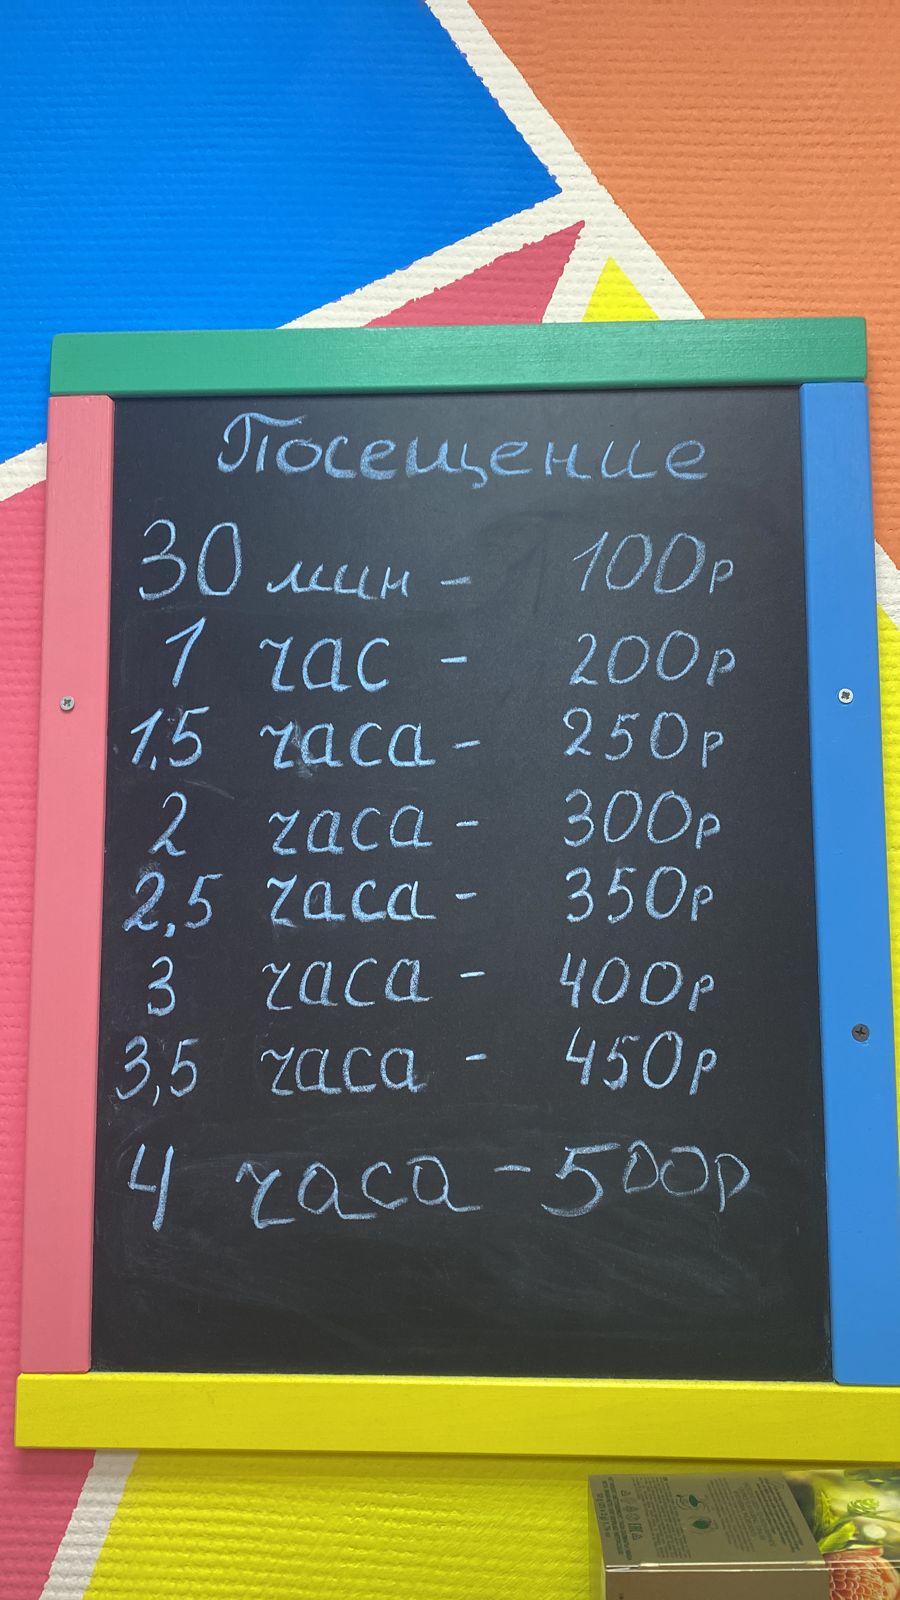 Посещение
30 мин - 100р
1 час - 200р
1,5 часа - 250р
2 часа - 300р
2,5 часа - 350р
3 часа - 400р
3,5 часа - 450р
4 часа - 500р